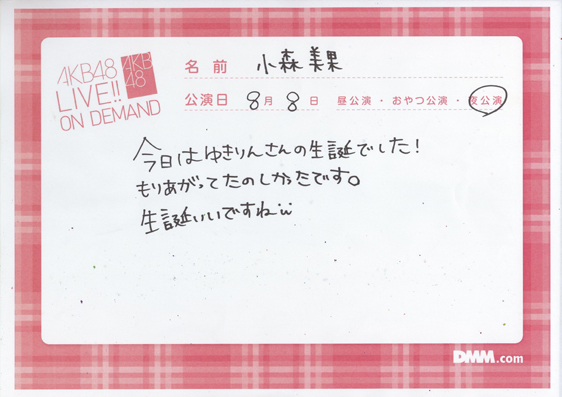 AKB48
LIVE!!
ON DEMAND
AKB
48
名前 小森美果
公演日 8月8日 昼公演・おやつ公演・夜公演
今日はゆきりんさんの生誕でした!
もりあがってたのしかったです。
生誕いいですね
DMM.com